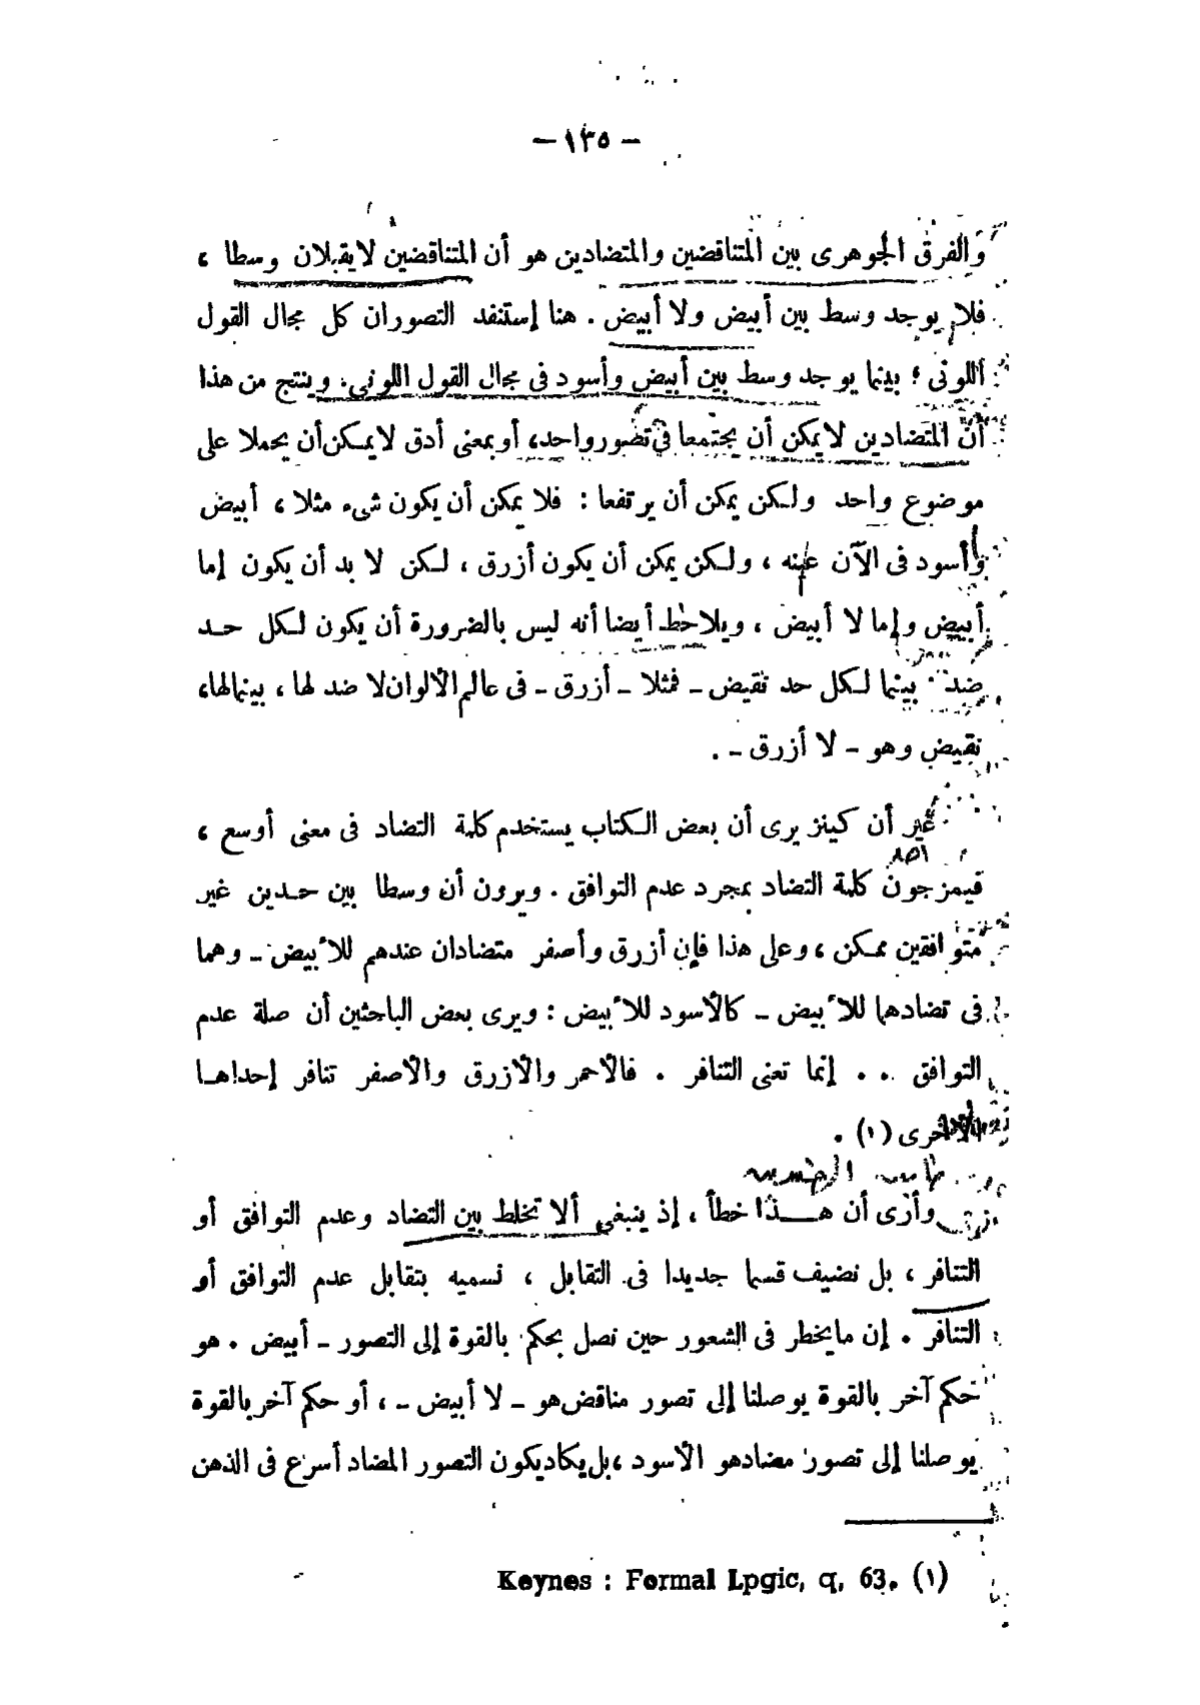 — ١٣٥ —
والفرق الجوهرى بين المتناقضين والمتضادين هو أن المتناقضين لايقبلان وسطا ،
فلا يوجد وسط بين أبيض ولا أبيض . هنا إستنفد التصوران كل مجال القول
اللونى ؛ بينما يوجد وسط بين أبيض وأسود فى مجال القول اللونى . وينتج من هذا
أن المتضادين لايمكن أن يجتمعا فى تصورواحد، أوبمعنى أدق لايمكن أن يحملا على
موضوع واحد ولكن يمكن أن يرتفعا : فلا يمكن أن يكون شىء مثلا ، أبيض
وأسود فى الآن عينه ، ولكن يمكن أن يكون أزرق ، لكن لا بد أن يكون إما
أبيض وإما لا أبيض ، ويلاحظ أيضا أنه ليس بالضرورة أن يكون لكل حد
ضد بينما لكل حد نقيض ـ فمثلا ـ أزرق ـ فى عالم الألوان لا ضد لها ، بينمالها،
نقيض وهو ـ لا أزرق ـ .
غير أن كينز يرى أن بعض الكتاب يستخدم كلمة التضاد فى معنى أوسع ،
فيمزجون كلمة التضاد بمجرد عدم التوافق . ويرون أن وسطا بين حدين غير
متوافقين ممكن ، وعلى هذا فإن أزرق وأصفر متضادان عندهم للأبيض ـ وهما
فى تضادهما للأبيض ـ كالأسود للأبيض : ويرى بعض الباحثين أن صلة عدم
التوافق . . إنما تعنى التنافر . فالأحمر والأزرق والأصفر تنافر إحداها
الأخرى (١) .
وأرى أن هذا خطأ ، إذ ينبغى ألا تخلط بين التضاد وعدم التوافق أو
التنافر ، بل نضيف قسما جديدا فى التقابل ، نسميه بتقابل عدم التوافق أو
التنافر . إن مايخطر فى الشعور حين نصل بحكم بالقوة إلى التصور ـ أبيض . هو
حكم آخر بالقوة يوصلنا إلى تصور مناقض هو ـ لا أبيض ـ ، أو حكم آخر بالقوة
يوصلنا إلى تصور مضادهو الأسود ، بل يكاديكون التصور المضاد أسرع فى الذهن
Keynes : Formal Lpgic, q, 63. (١)